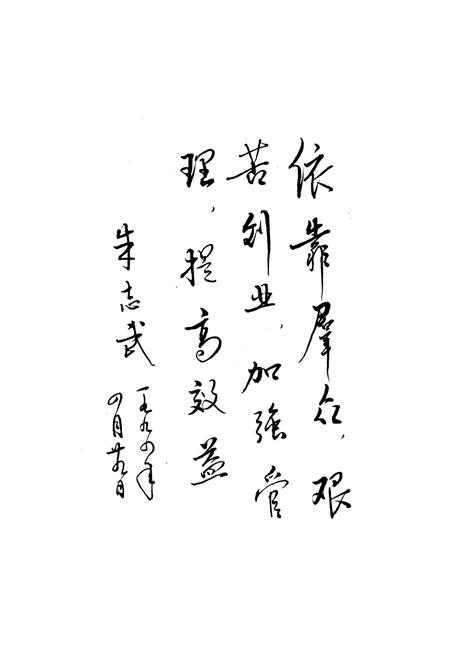 依靠羣众，艰
苦创业，加強管
理，提高效益
朱志武
一九九四年
四月廿九日